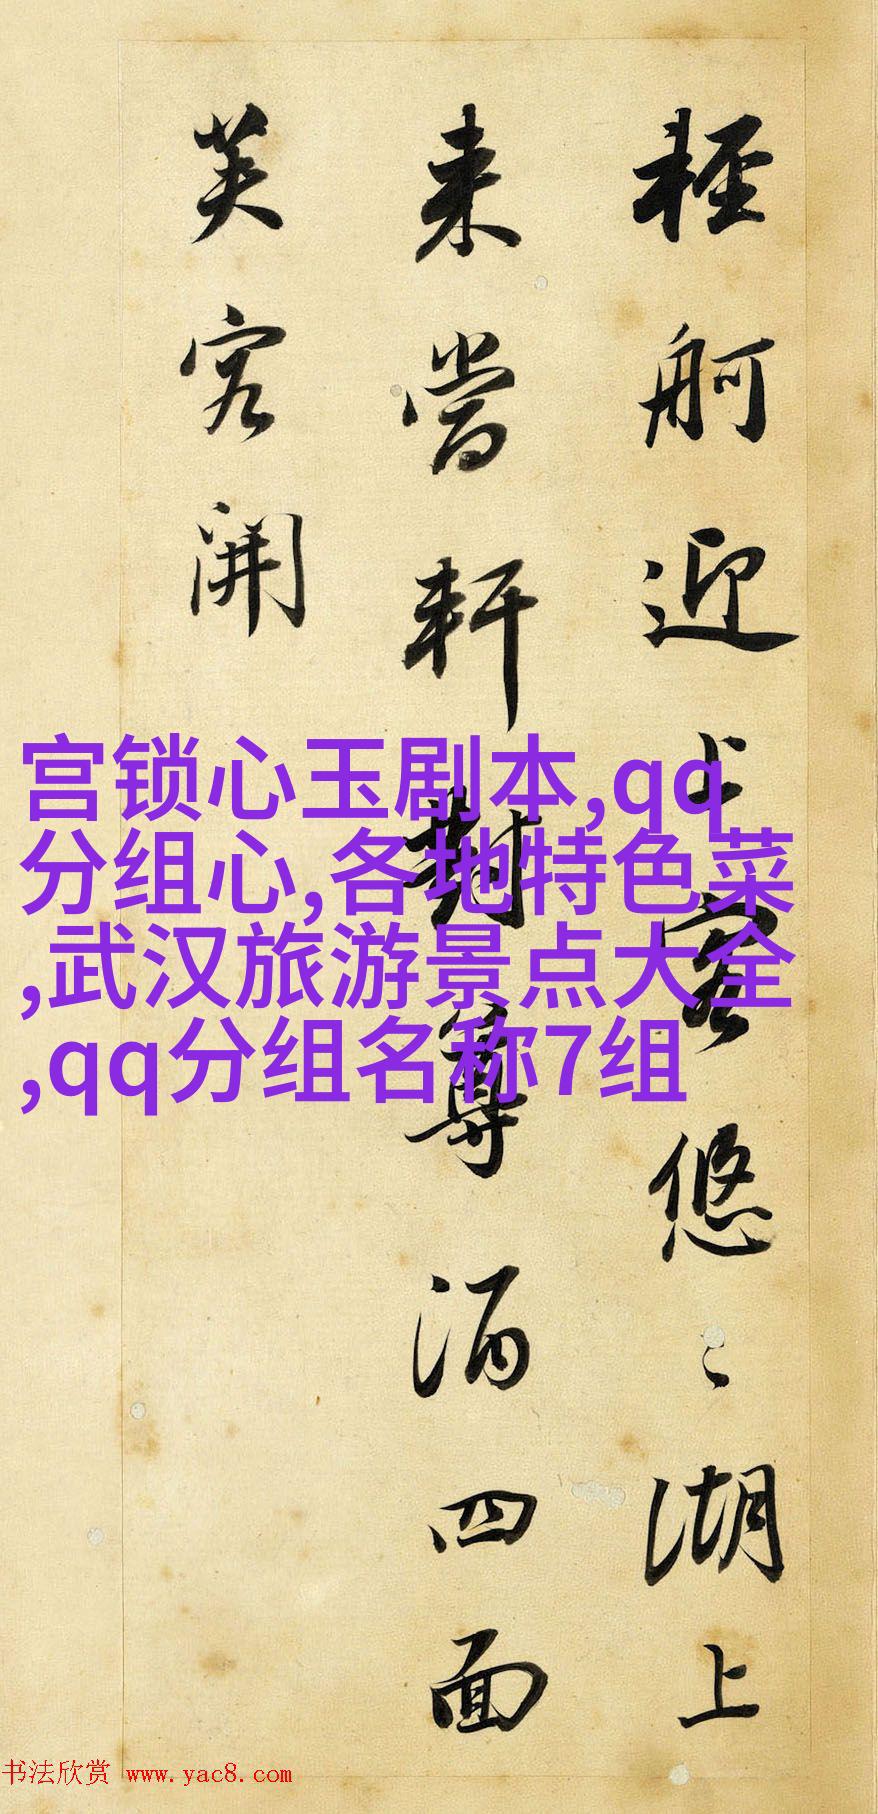 輕舸迎上客悠〻湖上
来當軒對尊酒四面
芙容開
宫锁心玉剧本,qq
分组心,各地特色菜
,武汉旅游景点大全
,qq分组名称7组
书法欣赏 www.yac8.com